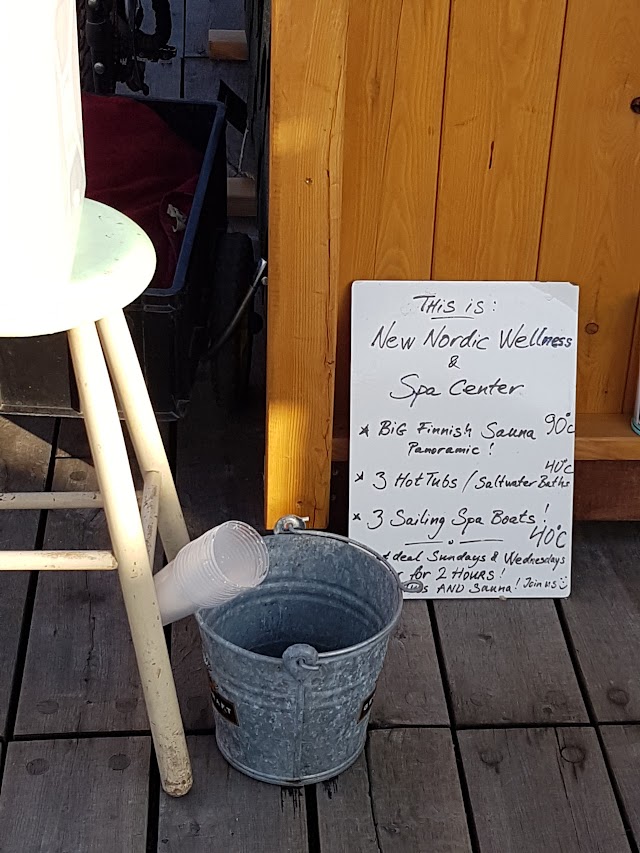 This is:
New Nordic Wellness
&
Spa Center
* Big Finnish Sauna 90°C
Panoramic!
40°C
* 3 Hot Tubs / Saltwater Baths
* 3 Sailing Spa Boats!
40°C
deal Sundays & Wednesdays
for 2 Hours!
AND Sauna! Join us